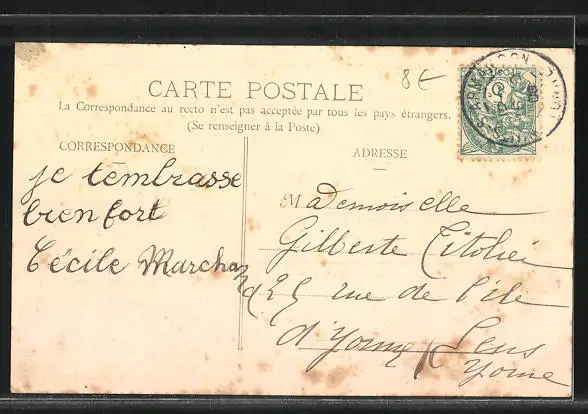 8€
CARTE POSTALE
La Correspondance au recto n'est pas acceptée par tous les pays étrangers.
(Se renseigner à la Poste)
CORRESPONDANCE
je t'embrasse
bien fort
Cécile Marchand
ADRESSE
Mademoiselle
Gilberte
25 rue de l'île
d'Yonne Sens
Yonne